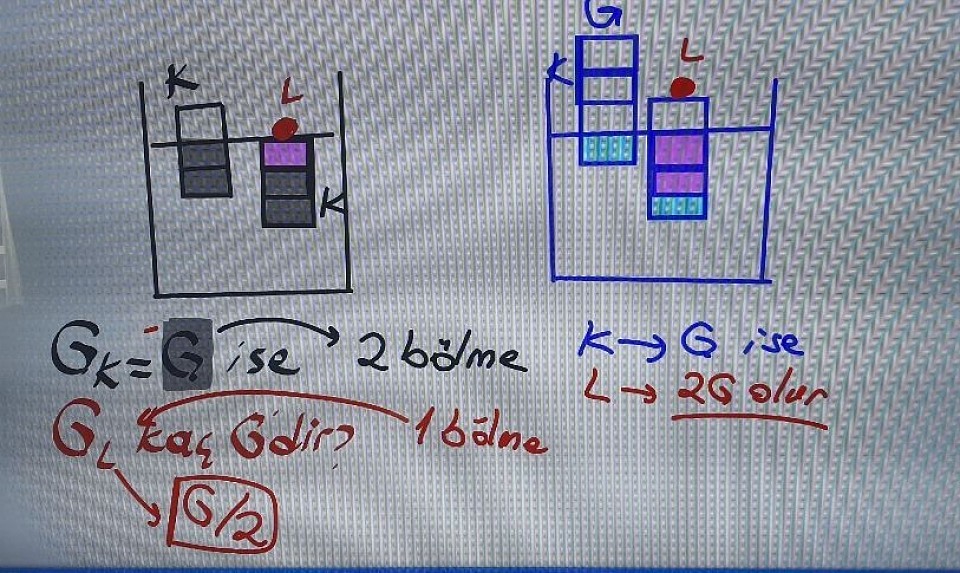 G
K
L
K
K
L
G_K = G ise → 2 bölme
G_L kaç G'dir? 1 bölme
G/2
K → G ise
L → 2G olur